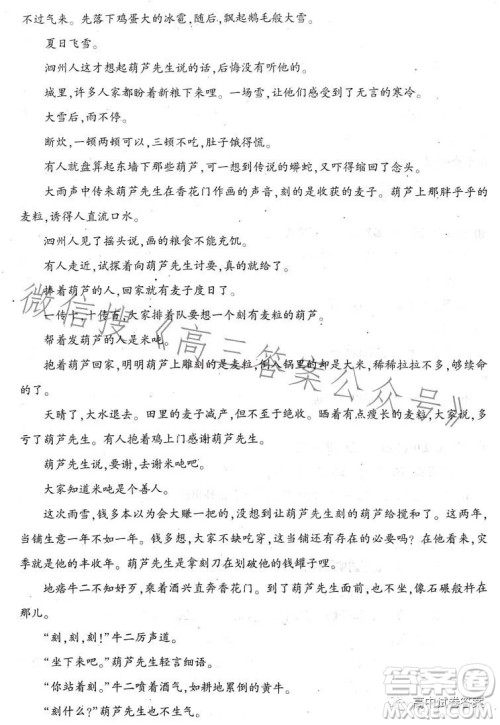 不过气来。先落下鸡蛋大的冰雹,随后,飘起鹅毛般大雪。
夏日飞雪。
泗州人这才想起葫芦先生说的话,后悔没有听他的。
城里,许多人家都盼着新粮下来哩。一场雪,让大家都感受到了无言的寒冷。
大雪后,雨不停。
断炊,一顿两顿可以,三顿不吃,肚子饿得慌。
有人就盘算起东墙下那些葫芦,可一想到手臂粗的蟒蛇,又吓得断了念头。
大雨声中传来葫芦先生在香花门作画的声音,刻的是收获的麦子。葫芦上那胖乎乎的
麦粒,诱得人直流口水。
泗州人见了摇头说,画的粮食不能充饥。
有人走近,试探着向葫芦先生讨要,真的就给了。
捧着葫芦的人,回家就有麦子度日了。
一传十,十传百,大家排着队要想一个刻有麦粒的葫芦。
帮着发葫芦的人是米吨。
抱着葫芦回家,明明葫芦上雕刻的是麦粒,倒入锅里的却是大米,稀稀拉拉不多,够续命
的了。
天晴了,大水退去。田里的麦子减产,但不至于绝收。晒着有点瘦长的麦粒,大家说,多
亏了葫芦先生。有人抱着鸡上门感谢葫芦先生。
葫芦先生说,要谢,去谢米吨吧。
大家知道米吨是个善人。
这次雨雪,钱多本以为会大赚一把的,没想到让葫芦先生刻的葫芦给搅和了。这两年,
当铺生意一年不如一年。钱多想,大家不缺吃穿,这当铺还有存在的必要吗?对他来说,灾
季就是他的丰收年。葫芦先生是拿刻刀在划破他的钱罐子哩。
地痞牛二不知好歹,乘着酒兴直奔香花门。到了葫芦先生面前,也不坐,像石碾般杵在
那儿。
“刻,刻,刻!”牛二厉声道。
“坐下来吧。”葫芦先生轻言细语。
“你站着刻。”牛二喷着酒气,如耕地累倒的黄牛。
“刻什么?”葫芦先生也不生气。
微信搜《高三答案公众号》
答案圈
MXQE.COM
高中试卷答案